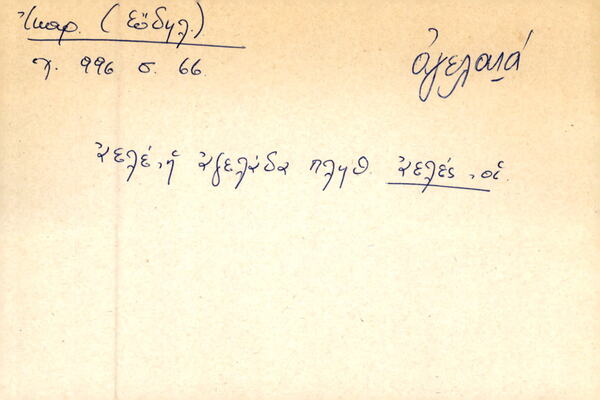 Ἰκαρ. (Εὔδηλ.)
χ. 996 σ. 66.
ἀγελαιά
ἀελέ, ἡ ἀγελάδα πληθ. ἀελές, οἱ.